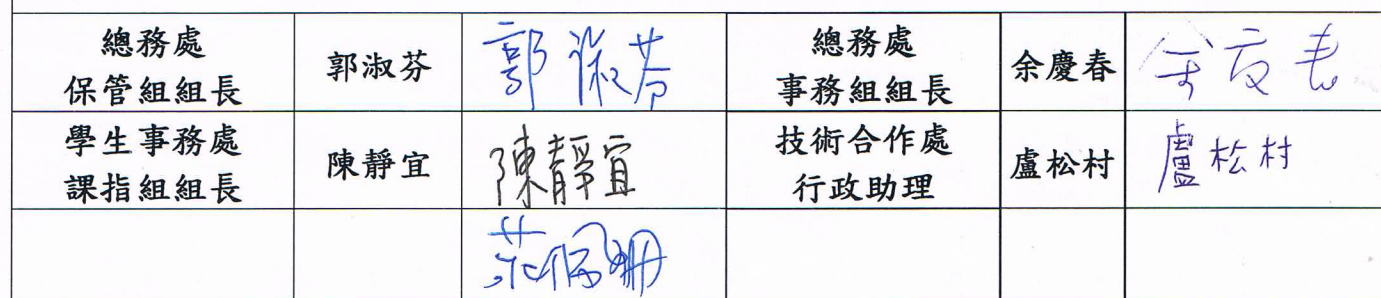 總務處
保管組組長
郭淑芬
郭淑芬
總務處
事務組組長
余慶春
余慶春
學生事務處
課指組組長
陳靜宜
陳靜宜
技術合作處
行政助理
盧松村
盧松村
莊佩珊